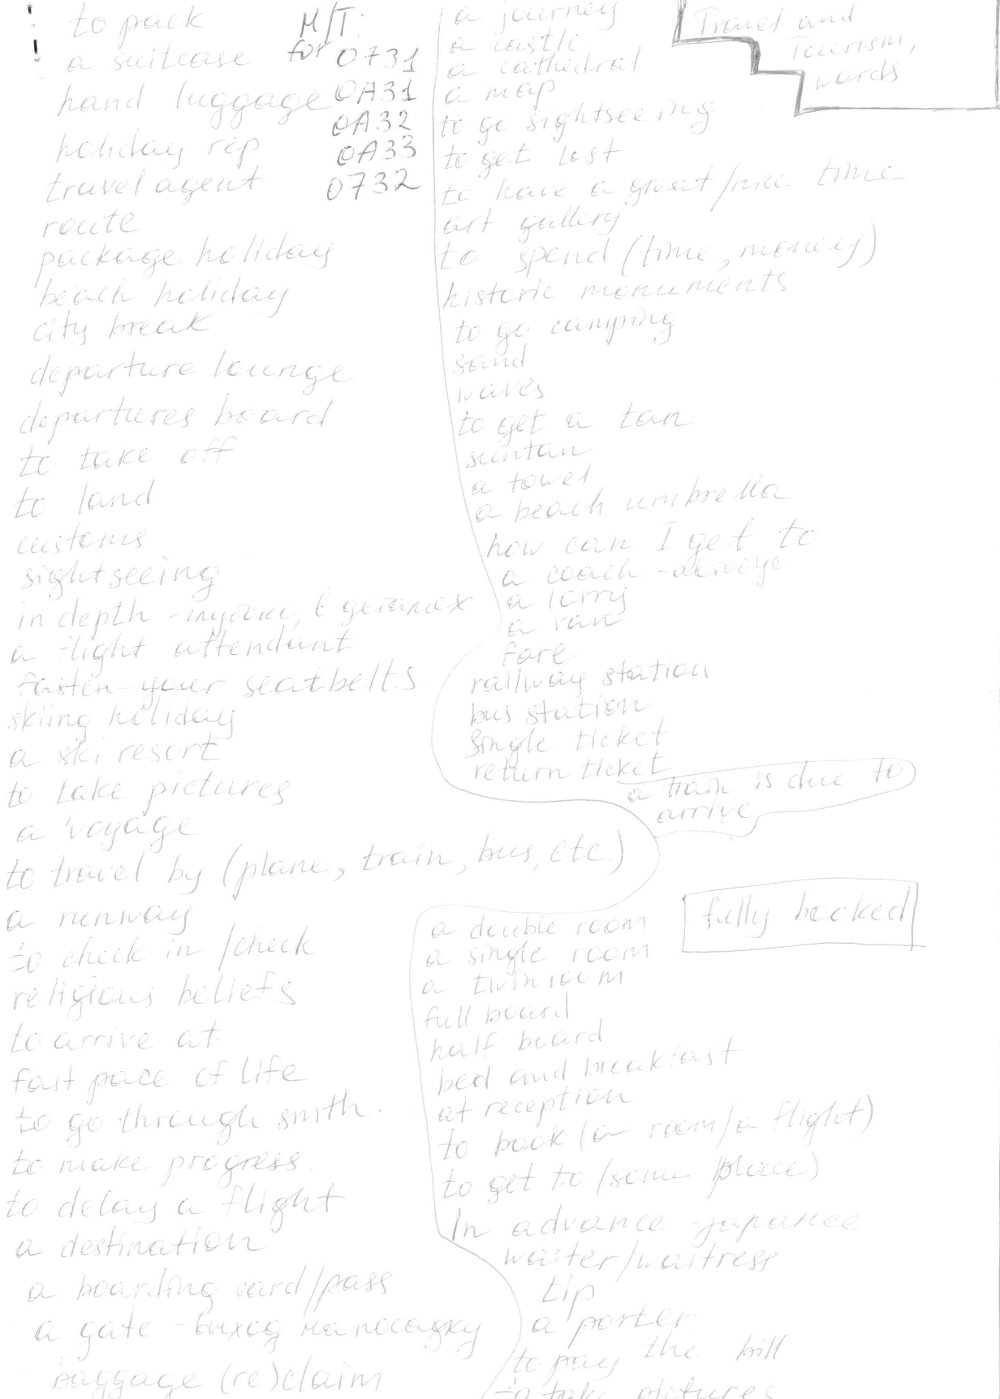 to pack
a suitcase
hand luggage
holiday rep
travel agent
route
package holiday
beach holiday
city break
departure lounge
departures board
to take off
to land
customs
sightseeing
in depth - глубоко, в деталях
a flight attendant
fasten your seatbelts
skiing holiday
a ski resort
to take pictures
a voyage
to travel by (plane, train, bus, etc.)
a runway
to check in /check
religious beliefs
to arrive at
fast pace of life
to go through smth.
to make progress
to delay a flight
a destination
a boarding card/pass
a gate - выход на посадку
baggage (re)claim
M/T:
for 0731
0A31
0A32
0A33
0732
a journey
a castle
a cathedral
a map
to go sightseeing
to get lost
to have a great/nice time
art gallery
to spend (time, money)
historic monuments
to go camping
sand
waves
to get a tan
suntan
a towel
a beach umbrella
how can I get to
a coach -
a lorry
a van
fare
railway station
bus station
single ticket
return ticket
a train is due to
arrive
a double room
a single room
a twin room
full board
half board
bed and breakfast
at reception
to book (a room/a flight)
to get to (some place)
In advance - заранее
waiter/waitress
tip
a porter
to pay the bill
to take pictures
Travel and
Tourism,
words
fully booked